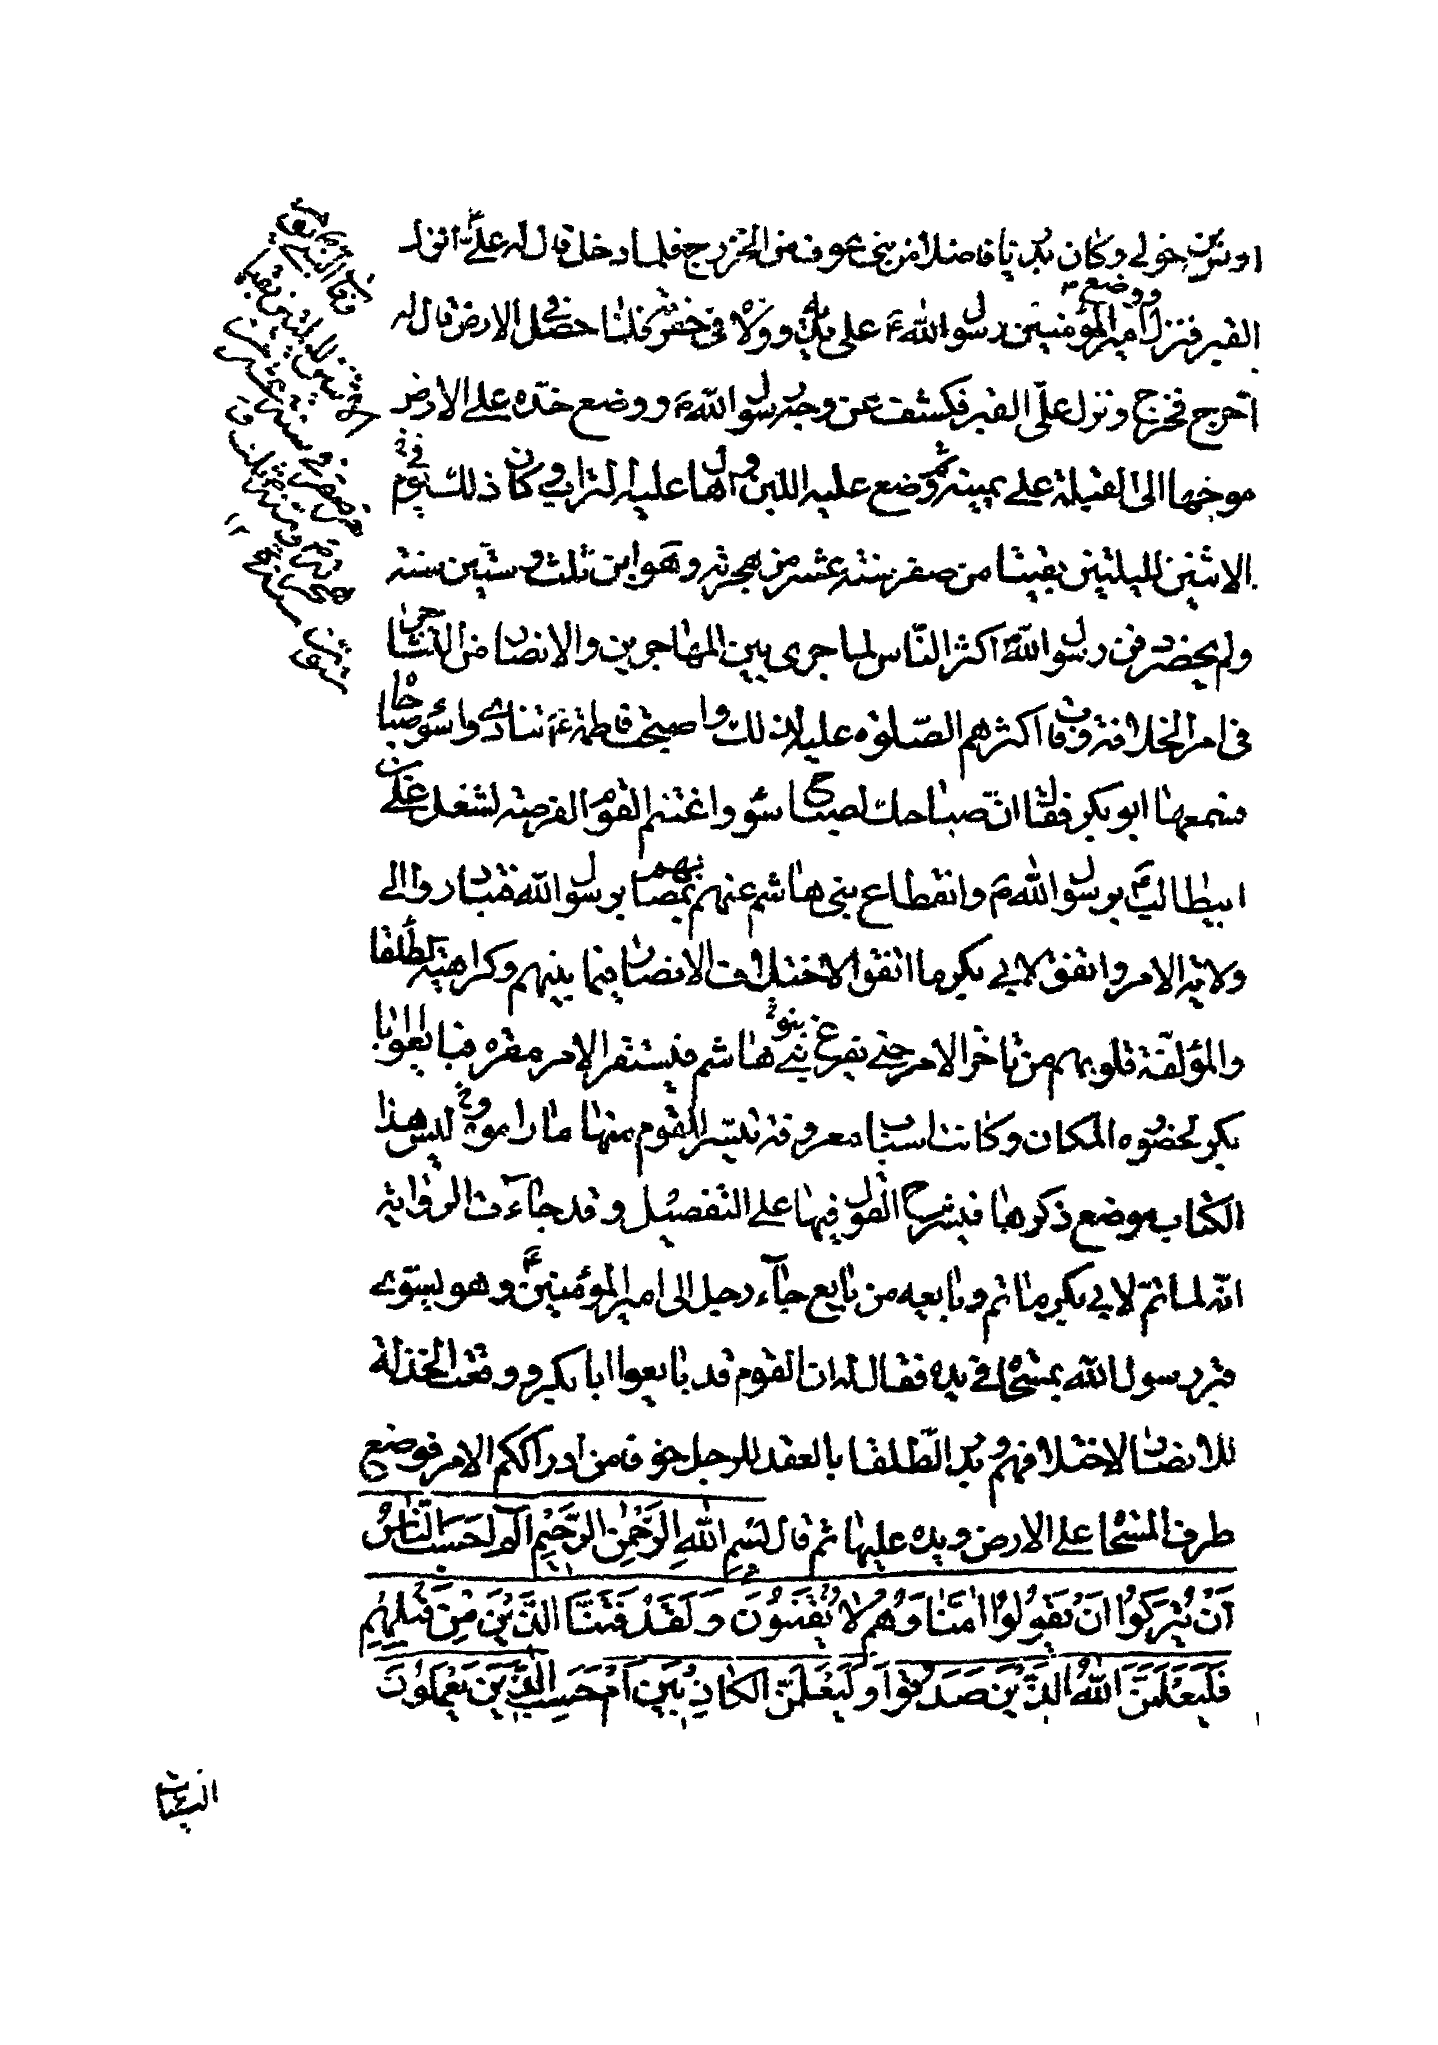 اوس بن خولي وكان بدريا فاضلا من بني عوف من الخزرج فلما دخل قال له علي ع انزل
القبر فنزل ووضع امير المؤمنين رسول الله ص على يديه وولاه في حفرته فلما حصل في الارض قال له
اخرج فخرج ونزل علي القبر فكشف عن وجه رسول الله ص ووضع خده على الارض
موجها الى القبلة على يمينه ثم وضع عليه اللبن واهال عليه التراب وكان ذلك في يوم
الاثنين لليلتين بقيتا من صفر سنة عشر من هجرته وهو ابن ثلث وستين سنة
ولم يحضر دفن رسول الله ص اكثر الناس لما جرى بين المهاجرين والانصار من التشاجر
في امر الخلافة وفات اكثرهم الصلوة عليه لذلك واصبحت فاطمة ع تنادي واسوء صباحاه
فسمعها ابو بكر فقال ان صباحك لصباح سوء واغتنم القوم الفرصة لشغل علي بن
ابيطالب ع برسول الله ص وانقطاع بني هاشم عنهم بمصابهم برسول الله فتبادروا الى
ولاية الامر واتفق لابي بكر ما اتفق لاختلاف الانصار فيما بينهم وكراهية الطلقا
والمؤلفة قلوبهم من تاخر الامر حتى يفرغ بنو هاشم فيستقر الامر مقره فبايعوا ابا
بكر لحضوره المكان وكانت اسباب معروفة تيسر للقوم منها ما راموه ليس هذا
الكتاب موضع ذكرها فيشرح القول فيها على التفصيل وقد جاءت الرواية
انه لما تم لابي بكر ما تم وبايعه من بايع جاء رجل الى امير المؤمنين ع وهو يسوي
قبر رسول الله بمسحاة في يده فقال له ان القوم قد بايعوا ابا بكر ووقعت الخذلة
للانصار لاختلافهم وبدر الطلقا بالعقد للرجل خوفا من ادراككم الامر فوضع
طرف المسحاة على الارض ويده عليها ثم قال بِسْمِ اللهِ الرَّحْمٰنِ الرَّحِيْمِ الٓمٓ اَحَسِبَ النَّاسُ
اَنْ يُتْرَكُوا اَنْ يَقُولُوا اٰمَنَّا وَهُمْ لا يُفْتَنُونَ وَلَقَدْ فَتَنَّا الَّذِيْنَ مِنْ قَبْلِهِمْ
فَلَيَعْلَمَنَّ اللهُ الَّذِيْنَ صَدَقُوا وَلَيَعْلَمَنَّ الكَاذِبِيْنَ اَمْ حَسِبَ الَّذِيْنَ يَعْمَلُونَ
السيئات